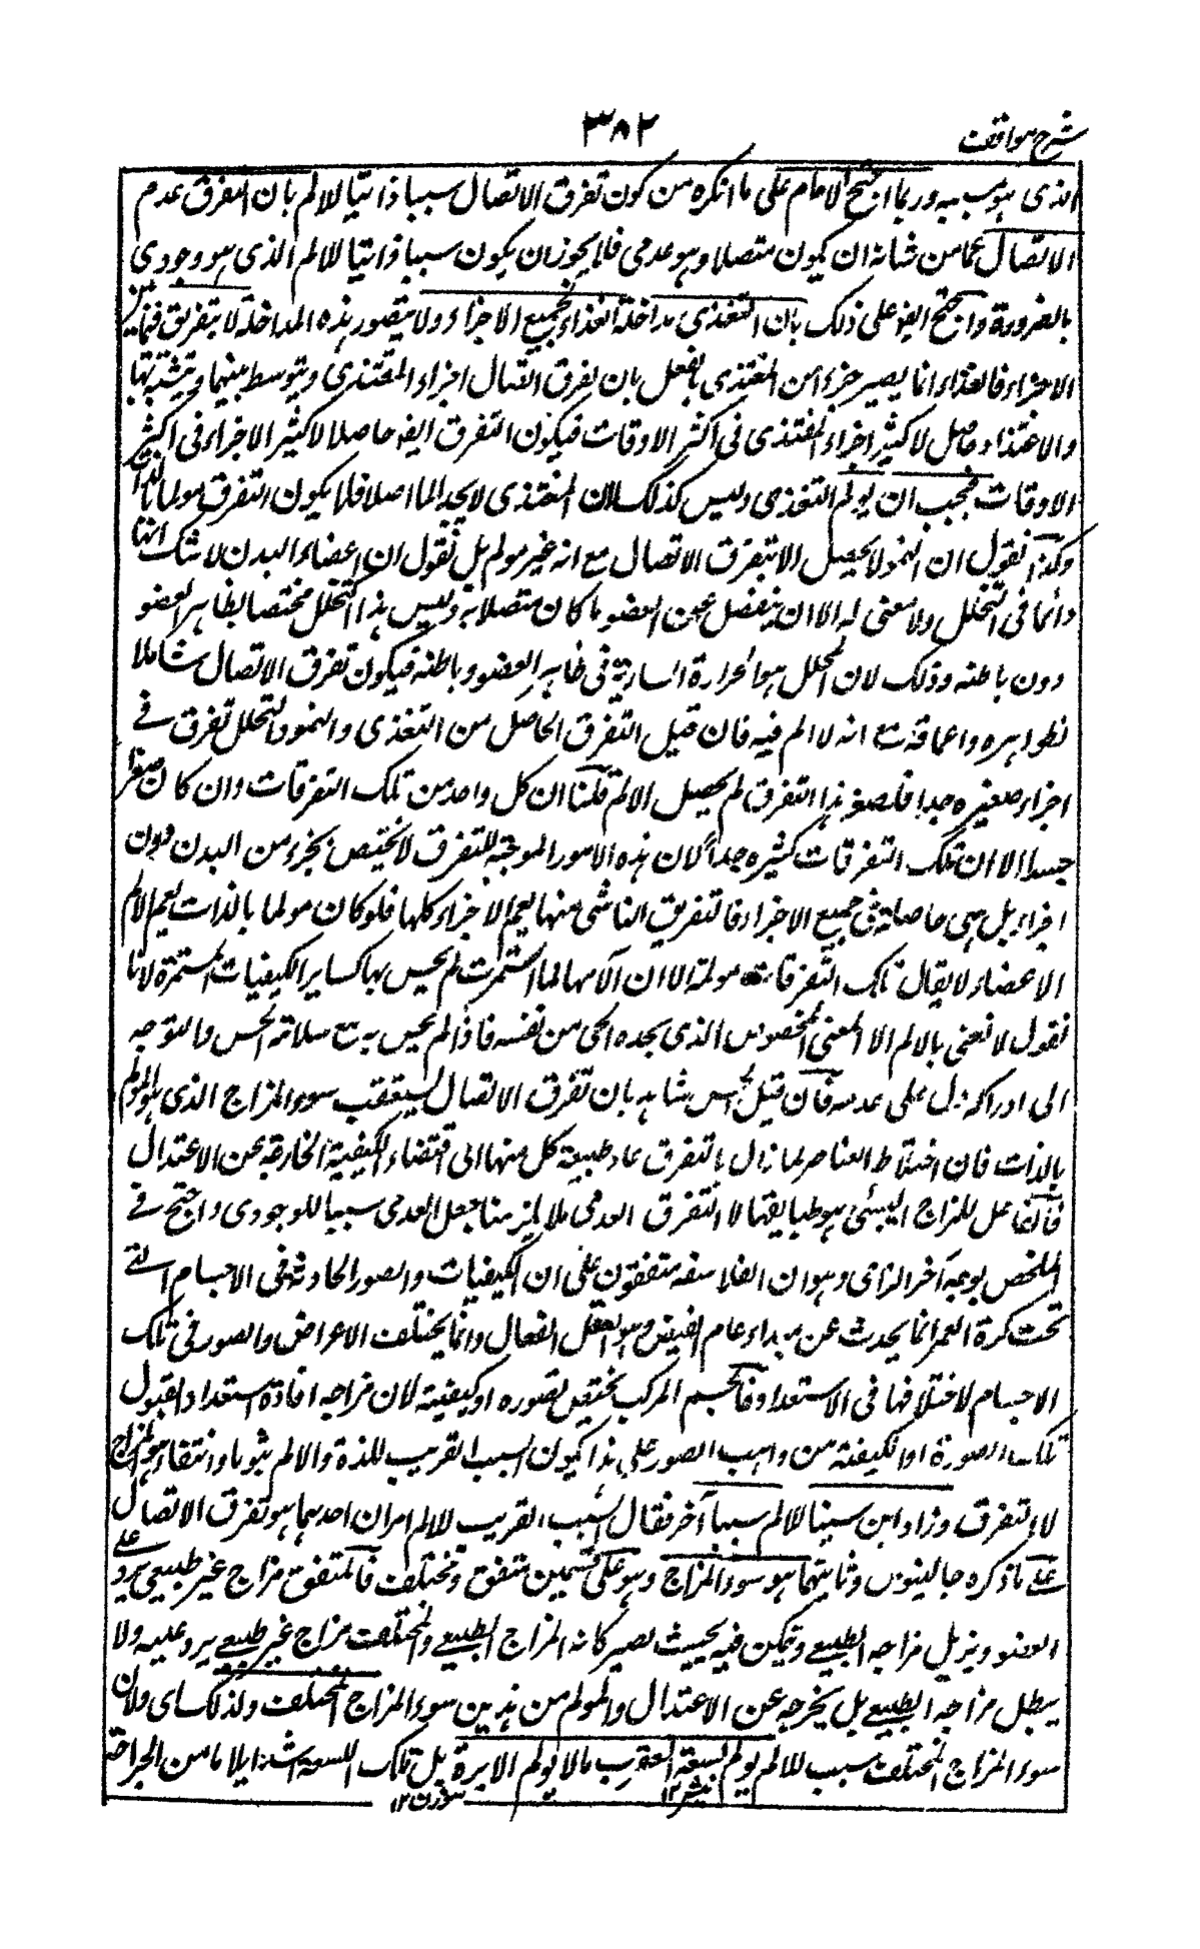 شرح مواقف
٣٨٢
الذى هو سببه وربما احتج الامام على ما انكره من كون تفرق الاتصال سببا ذاتيا للالم بان التفرق عدم
الاتصال عما من شانه ان يكون متصلا وهو عدمى فلا يجوز ان يكون سببا ذاتيا للالم الذى هو وجودى
بالضرورة واحتج ايضا على ذلك بان التغذى مداخلة الغذاء لجميع الاجزاء ولا يتصور هذه المداخلة الا بتفريق فيما بين
الاجزاء فالغذاء انما يصير جزءا من المغتذى بالفعل بان يفرق اتصال اجزاء المغتذى ويتوسط بينها ويتشبه بها
والاغتذاء حاصل لاكثر اجزاء المغتذى فى اكثر الاوقات فيكون التفرق ايضا حاصلا لاكثر الاجزاء فى اكثر
الاوقات فيجب ان يولم التغذى وليس كذلك لان المغتذى لا يجد الما اصلا فلا يكون التفرق مولما بالذات
وكذا نقول ان النمو لا يحصل الا بتفرق الاتصال مع انه غير مولم بل نقول ان اعضاء البدن لا شك انها
دائما فى التحلل ولا معنى له الا ان ينفصل عن العضو ما كان متصلا به وليس هذا التحلل مختصا بظاهر العضو
دون باطنه وذلك لان المحلل هو الحرارة السارية فى ظاهر العضو وباطنه فيكون تفرق الاتصال شاملا
لظواهره واعماقه مع انه لا الم فيه فان قيل التفرق الحاصل من التغذى والنمو والتحلل تفرق فى
اجزاء صغيرة جدا فلصغر هذا التفرق لم يحصل الالم قلنا ان كل واحد من تلك التفرقات وان كان صغيرا
جدا الا ان تلك التفرقات كثيرة جداً لان هذه الامور الموجبة للتفرق لا تختص بجزء من البدن دون
اجزاء بل هى حاصلة فى جميع الاجزاء فالتفريق الناشى منها يعم الاجزاء كلها فلو كان مولما بالذات لعم الالم
الاعضاء لا يقال تلك التفرقات مولمة الا ان آلامها لما استمرت لم يحس بها كساير الكيفيات المستمرة لانا
نقول لا نعنى بالالم الا المعنى المخصوص الذى يجده الحى من نفسه فاذا لم يحس به مع سلامة الحس والتوجه
الى ادراكه دل على عدمه فان قيل الحس شاهد بان تفرق الاتصال يستعقب سوء المزاج الذى هو المولم
بالذات فان اختلاط العناصر لما زال بالتفرق عاد طبيعة كل منها الى اقتضاء الكيفية الخارجة عن الاعتدال
فالفاعل للمزاج السيئ هو طبايعها لا التفرق العدمى فلا يلزمنا جعل العدمى سببا للوجودى واحتج فى
الملخص بوجه آخر الزامى وهو ان الفلاسفة متفقون على ان الكيفيات والصور الحادثة فى الاجسام التى
تحت كرة القمر انما يحدث عن مبداء عام الفيض وهو العقل الفعال وانما يختلف الاعراض والصور فى تلك
الاجسام لاختلافها فى الاستعداد فالجسم المركب يختص بصورة او كيفية لان مزاجه افاده استعدادا لقبول
تلك الصورة او الكيفية من واهب الصور على هذا يكون السبب القريب للذة والالم ثبوتا وانتفاء هو المزاج
لا التفرق وزاد ابن سينا للالم سببا آخر فقال السبب القريب للالم امران احدهما هو تفرق الاتصال
على ما ذكره جالينوس وثانيهما هو سوء المزاج وهو على قسمين متفق ومختلف فالمتفق مزاج غير طبيعى يرد على
العضو ويزيل مزاجه الطبيعى ويتمكن فيه بحيث يصير كانه المزاج الطبيعى والمختلف مزاج غير طبيعى يرد عليه ولا
يبطل مزاجه الطبيعى بل يخرجه عن الاعتدال والمولم من هذين سوء المزاج المختلف ولذلك اى ولان
سوء المزاج المختلف سبب للالم يولم لسعة العقرب ما لا يولم الابرة بل تلك اللسعة اشد ايلاما من الجراحة